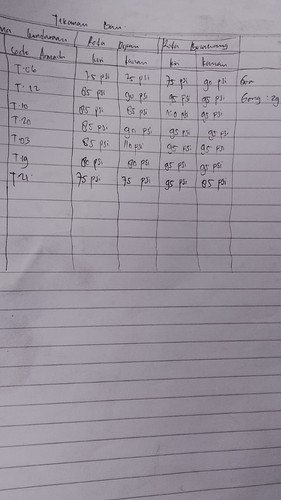 Tekanan Ban
Kendaraan Roda Depan Roda Belakang
Code Armada kiri kanan kiri kanan
T.06 75 psi 75 psi 75 psi 90 psi
T.12 85 psi 90 psi 95 psi 95 psi
T.10 85 psi 85 psi 100 psi 95 psi
T.20 85 psi 90 psi 95 psi 95 psi
T.03 85 psi 110 psi 95 psi 95 psi
T.19 80 psi 80 psi 95 psi 95 psi
T.21 75 psi 75 psi 95 psi 85 psi